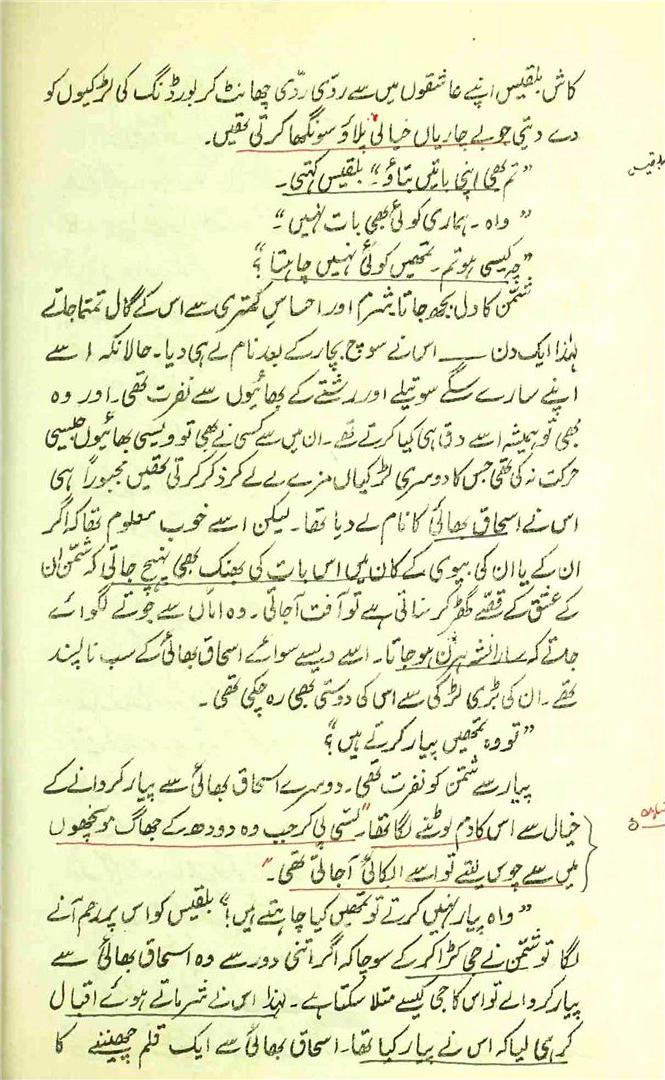 کاش بلقیس اپنے عاشقوں میں سے ردّی ردّی چھانٹ کر بورڈنگ کی لڑکیوں کو
دے دیتی جو بے چاریاں خیالی پلاؤ سونگھا کرتی تھیں۔
”تم بھی اپنی باتیں بتاؤ۔“ بلقیس کہتی۔
”واہ۔ ہماری کوئی بھی بات نہیں“۔
”چہ کیسی ہو تم۔ تمھیں کوئی نہیں چاہتا؟“
شمّن کا دل بجھ جاتا شرم اور احساس کمتری سے اس کے گال تمتما جاتے
لہٰذا ایک دن ـــــ اس نے سوچ بچار کے بعد نام لے ہی دیا۔ حالانکہ اسے
اپنے سارے سگے سوتیلے اور رشتے کے بھائیوں سے نفرت تھی۔ اور وہ
بھی تو ہمیشہ اسے دق ہی کیا کرتے تھے۔ ان میں سے کسی نے بھی تو ویسی بھائیوں جیسی
حرکت نہ کی تھی جس کا دوسری لڑکیاں مزے لے لے کر ذکر کرتی تھیں مجبوراً ہی
اس نے اسحاق بھائی کا نام لے دیا تھا۔ لیکن اسے خوب معلوم تھا کہ اگر
ان کے یا ان کی بیوی کے کان میں اس بات کی بھنک بھی پہنچ جاتی کہ شمّن ان
کے عشق کے قصّے گھڑ کر سناتی ہے تو آفت آجاتی۔ وہ امّاں سے جوتے لگوائے
جاتے کہ سارا نشہ ہرن ہو جاتا۔ اسے ویسے سوائے اسحاق بھائی کے سب ناپسند
تھے۔ ان کی بڑی لڑکی سے اس کی دوستی بھی رہ چکی تھی۔
”تو وہ تمھیں پیار کرتے ہیں؟“
پیار سے شمّن کو نفرت تھی۔ دوسرے اسحاق بھائی سے پیار کروانے کے
خیال سے اس کا دم لوٹنے لگا تھا۔ ”لسّی پی کر جب وہ دودھ کے جھاگ مونچھوں
میں سے چوس لیتے تو اسے ابکائی آجاتی تھی۔“
”واہ پیار نہیں کرتے تو تمھیں کیا چاہتے ہیں!“ بلقیس کو اس پر رحم آنے
لگا تو شمّن نے جی کڑا کر کے سوچا کہ اگر اتنی دور سے وہ اسحاق بھائی سے
پیار کروالے تو اس کا جی کیسے متلا سکتا ہے۔ لہٰذا اس نے شرماتے ہوئے اقبال
کر ہی لیا کہ اس نے پیار کیا تھا۔ اسحاق بھائی سے ایک قلم چھیننے کا